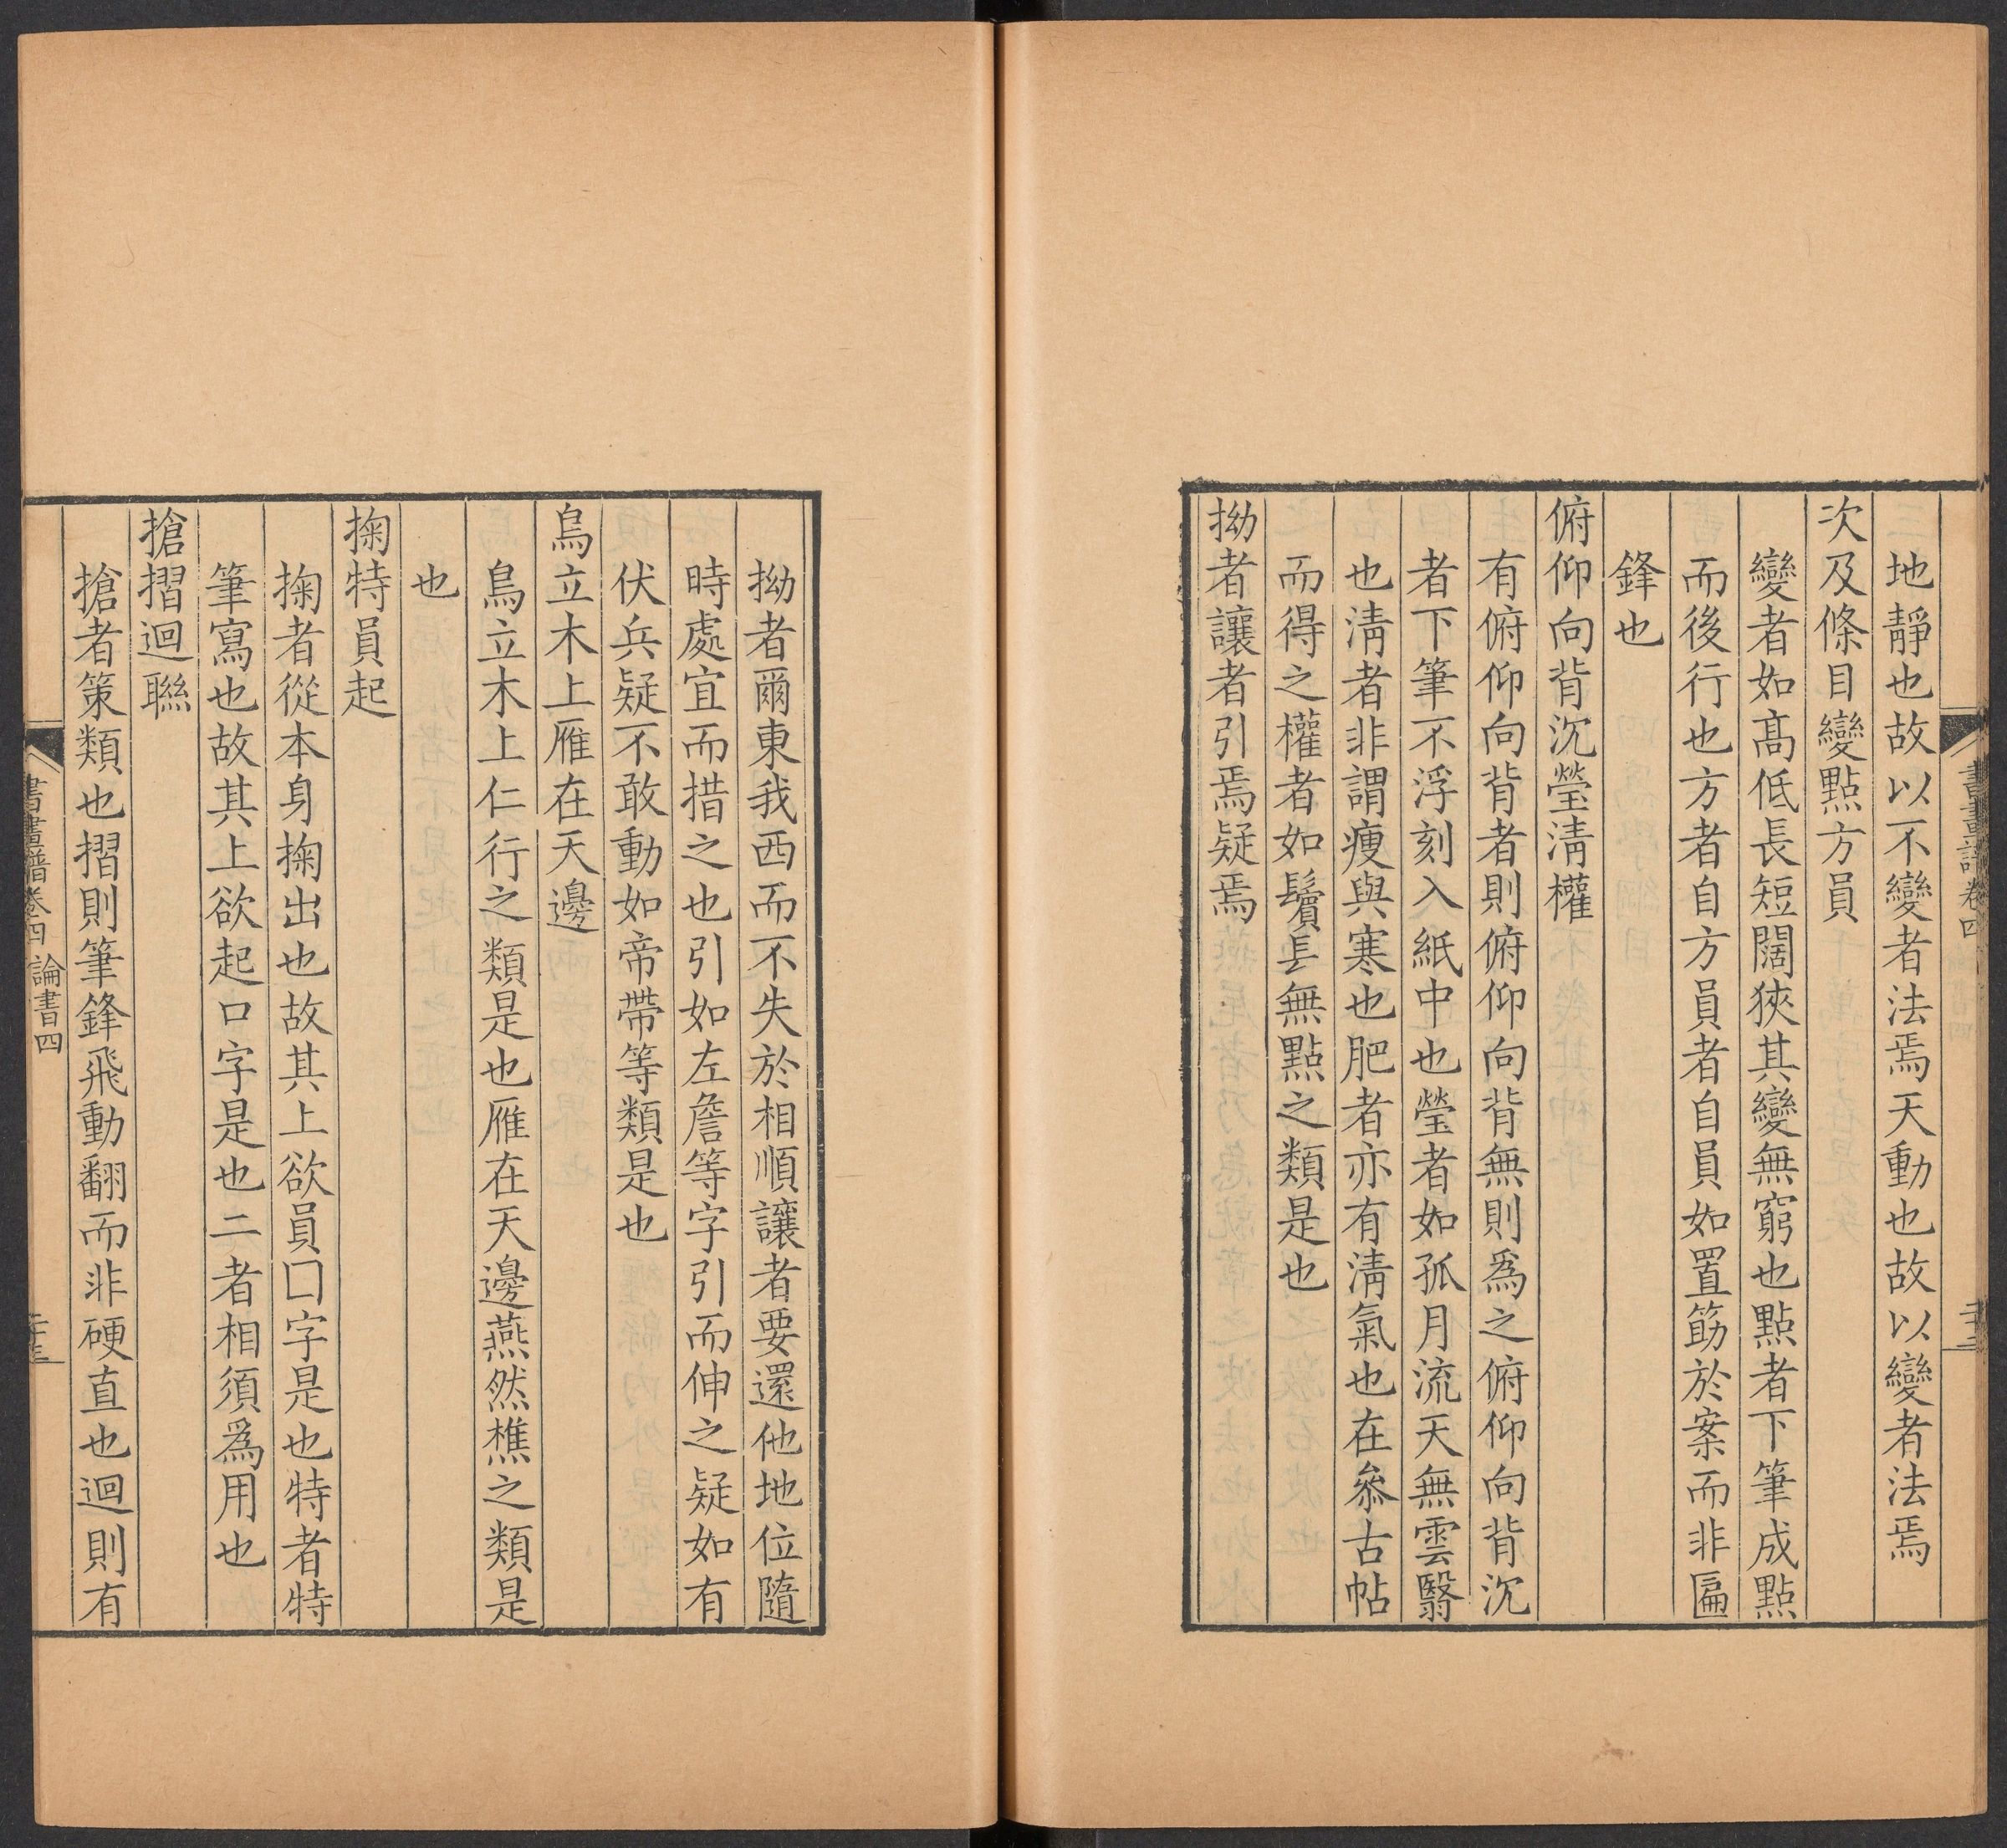 書畫譜卷四
地靜也故以不變者法焉天動也故以變者法焉
次及條目變點方員
變者如髙低長短闊狹其變無窮也點者下筆成點
而後行也方者自方員者自員如置筯於案而非匾
鋒也
俯仰向背沉瑩淸權
有俯仰向背者則俯仰向背無則爲之俯仰向背沉
者下筆不浮刻入紙中也瑩者如孤月流天無雲翳
也淸者非謂瘦與寒也肥者亦有淸氣也在叅古帖
而得之權者如鬢镸無點之類是也
拗者讓者引焉疑焉
拗者爾東我西而不失於相順讓者要還他地位隨
時處宜而措之也引如左詹等字引而伸之疑如有
伏兵疑不敢動如帝帶等類是也
烏立木上雁在天邊
鳥立木上仁行之類是也雁在天邊燕然樵之類是
也
掬特員起
掬者從本身掬出也故其上欲員口字是也特者特
筆寫也故其上欲起口字是也二者相須爲用也
搶摺迴聮
搶者策類也摺則筆鋒飛動翻而非硬直也迴則有
書畫譜卷四 論書四